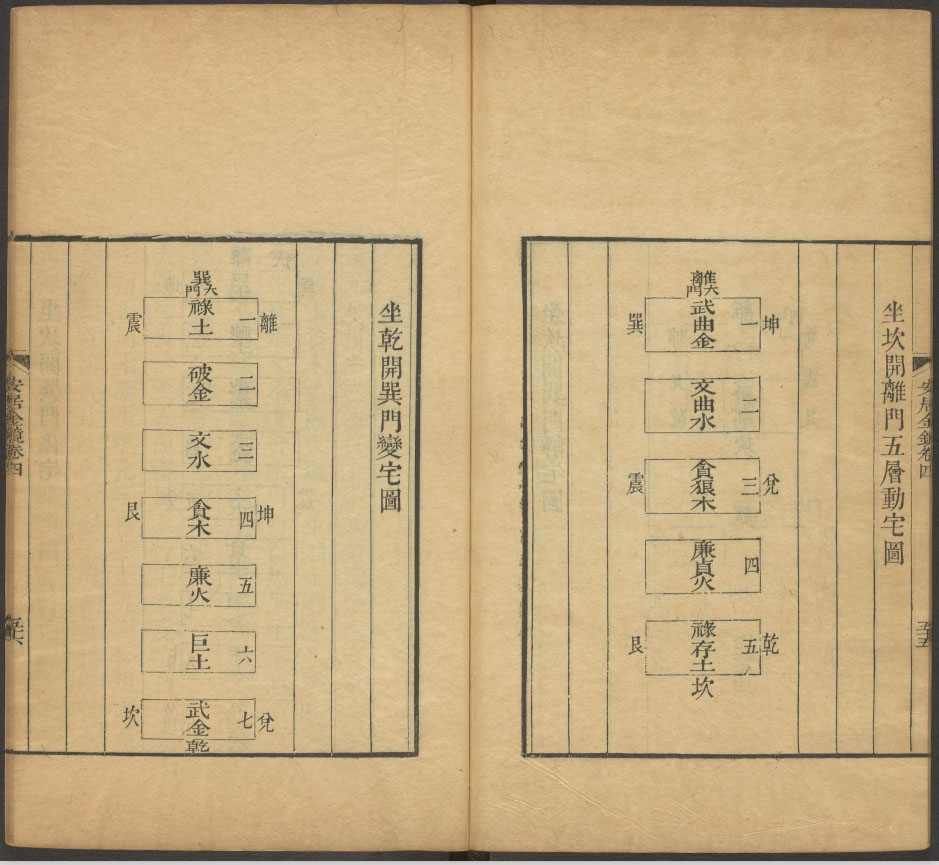 坐坎開離門五層動宅圖
離大門
坤 一 武曲金 巽
二 文曲水
兌 三 貪狼木 震
四 廉貞火
乾 五 祿存土 艮
坎
安居金鏡卷四
五五
坐乾開巽門變宅圖
巽大門
離 一 祿土 震
二 破金
三 文水
坤 四 貪木 艮
五 廉火
六 巨土
兌 七 武金 坎
乾
安居金鏡卷四
五六